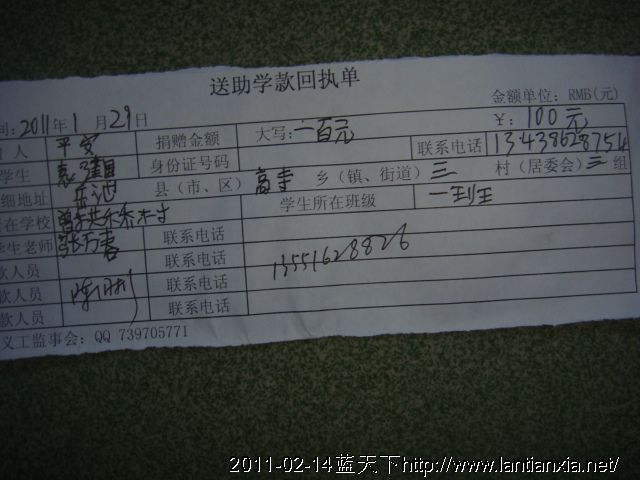 送助学款回执单
金额单位: RMB(元)
间: 2011年 1 月 29日
人 平安 捐赠金额 大写: 一百元 ¥: 100元
学生 身份证号码 联系电话 13438628754
细地址 岳池 县(市、区) 高寺 乡(镇、街道) 三 村(居委会) 三 组
所在学校 学生所在班级 一到王
学生老师 联系电话
款人员 联系电话 13551628826
款人员 联系电话
款人员 联系电话
义工监事会: QQ 739705771
2011-02-14蓝天下http://www.lantianxia.net/